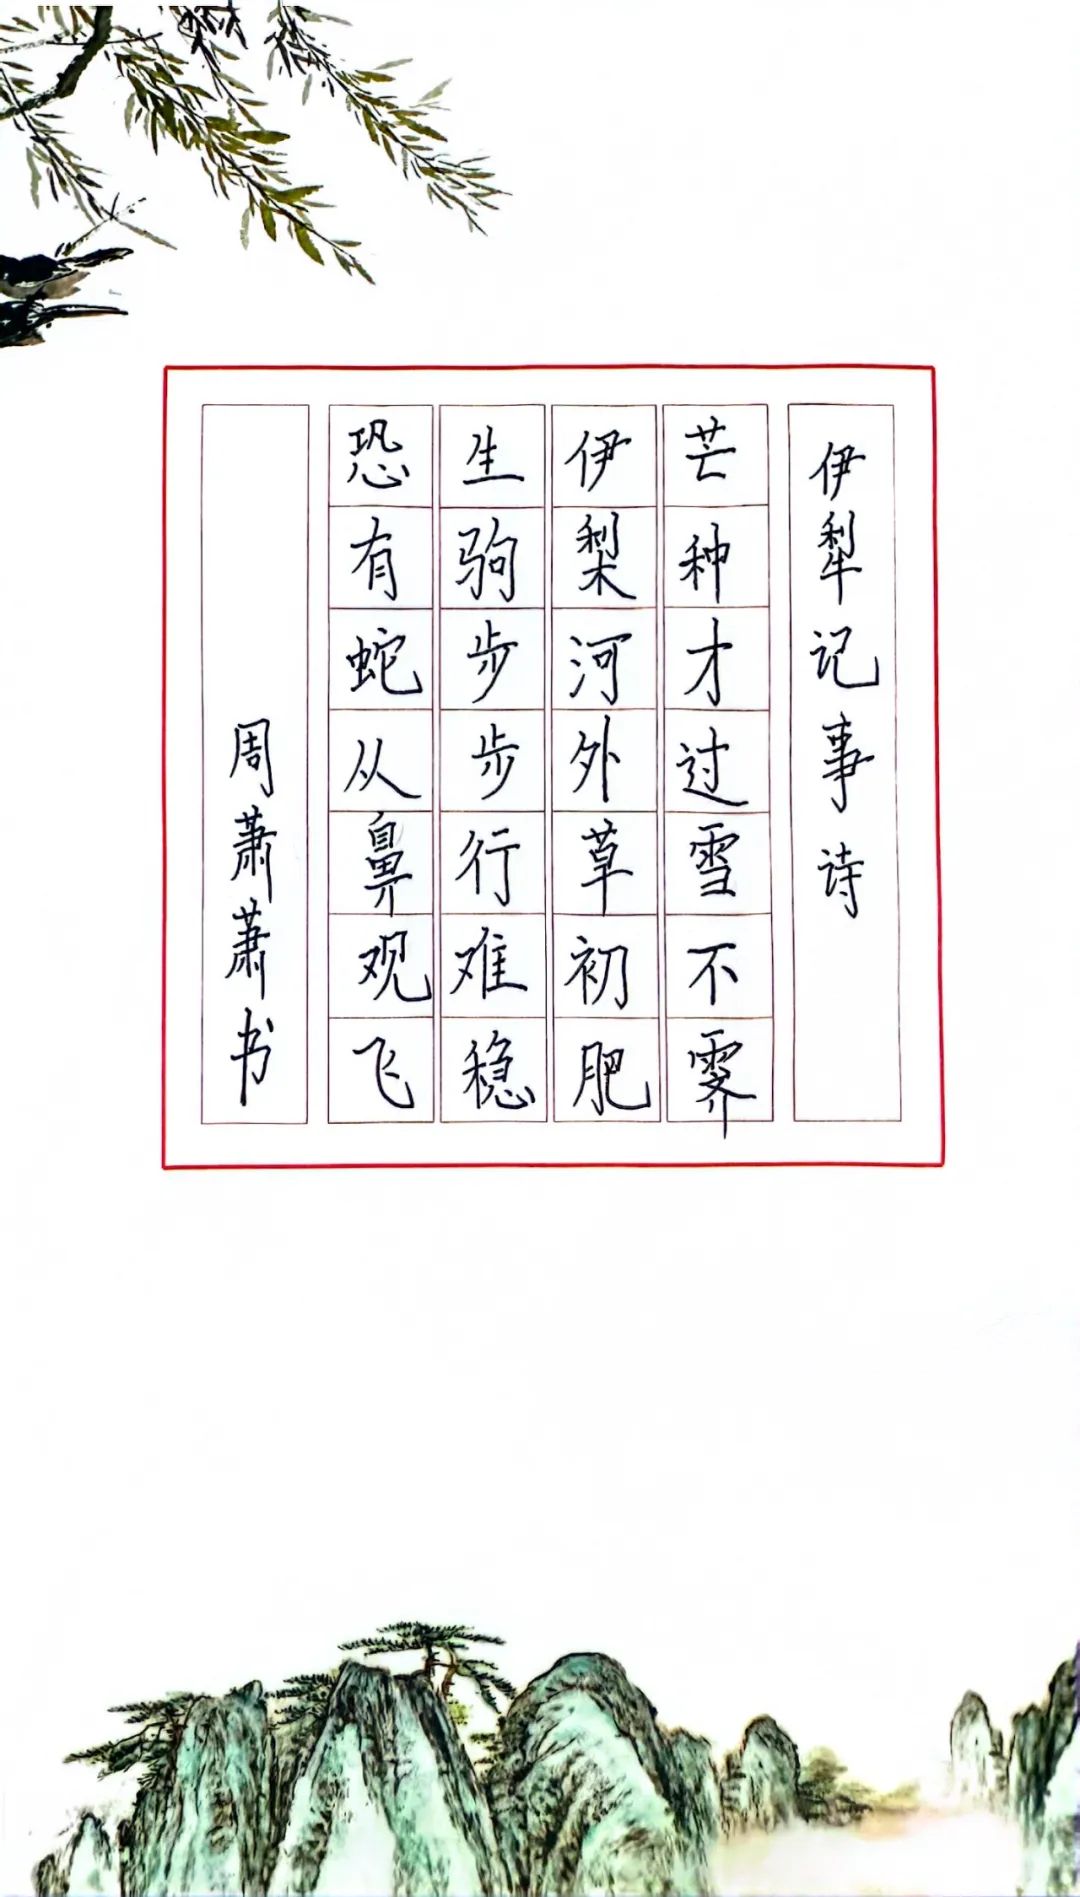 伊犁记事诗
芒种才过雪不霁
伊梨河外草初肥
生驹步步行难稳
恐有蛇从鼻观飞
周萧萧书